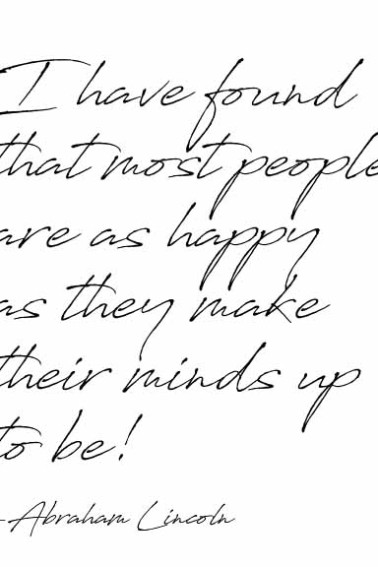 I have found
that most people
are as happy
as they make
their minds up
to be!
-Abraham Lincoln